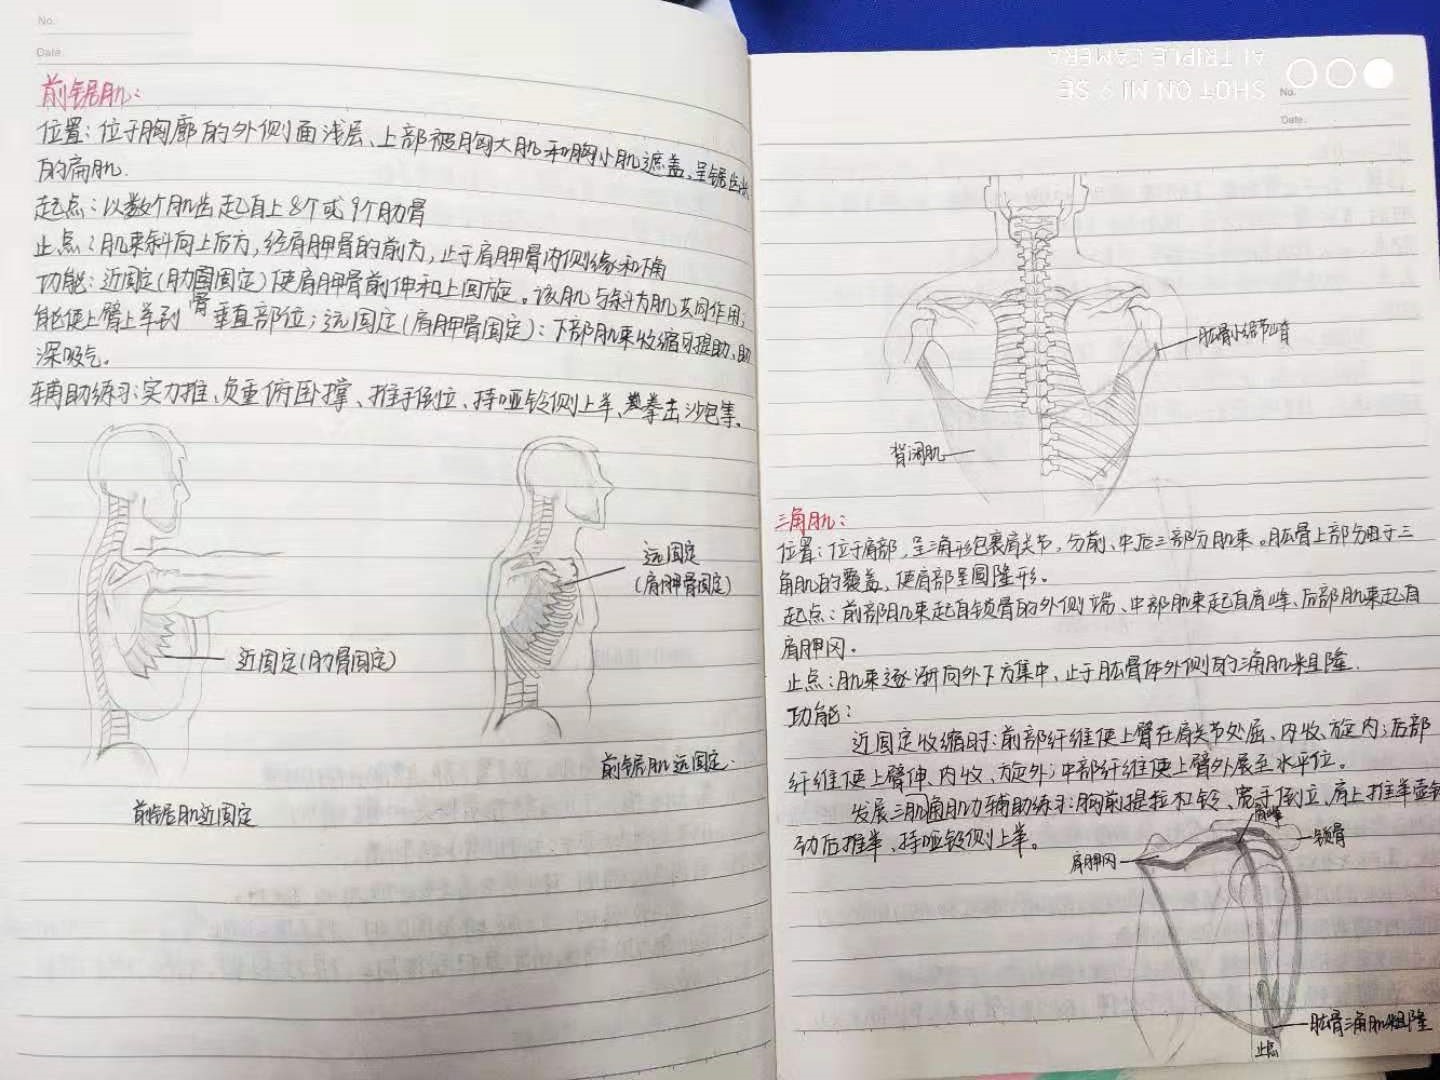 No.
Date.
前锯肌:
位置:位于胸廓的外侧面浅层、上部被胸大肌和胸小肌遮盖,呈锯齿状
的扁肌.
起点:以数个肌齿起自上8个或9个肋骨
止点:肌束斜向上后方,经肩胛骨的前方,止于肩胛骨内侧缘和下角
功能:近固定(肋骨固定)使肩胛骨前伸和上回旋。该肌与斜方肌共同作用;
能使上臂上举到垂直部位;远固定(肩胛骨固定):下部肌束收缩可提肋、助
深吸气。
辅助练习:实力推、负重俯卧撑、推手倒立、持哑铃侧上举、拳击沙包等.
远固定
(肩胛骨固定)
近固定(肋骨固定)
前锯肌远固定.
前锯肌近固定
SHOT ON MI 9 SE
AI TRIPLE CAMERA
No.
Date.
肱骨小结节嵴
背阔肌
三角肌:
位置:位于肩部,呈三角形包裹肩关节,分前、中后三部分肌束。肱骨上部分由于三
角肌的覆盖,使肩部呈圆隆形。
起点:前部肌束起自锁骨的外侧端、中部肌束起自肩峰、后部肌束起自
肩胛冈。
止点:肌束逐渐向外下方集中、止于肱骨体外侧的三角肌粗隆.
功能:
近固定收缩时:前部纤维使上臂在关节处屈、内收、旋内;后部
纤维使上臂伸、内收、旋外;中部纤维使上臂外展至水平位。
发展三角肌力辅助练习:胸前提拉杠铃、宽手倒立、肩上推举壶铃
劲后推举、持哑铃侧上举。
肩峰
锁骨
肩胛冈
肱骨三角肌粗隆
止点